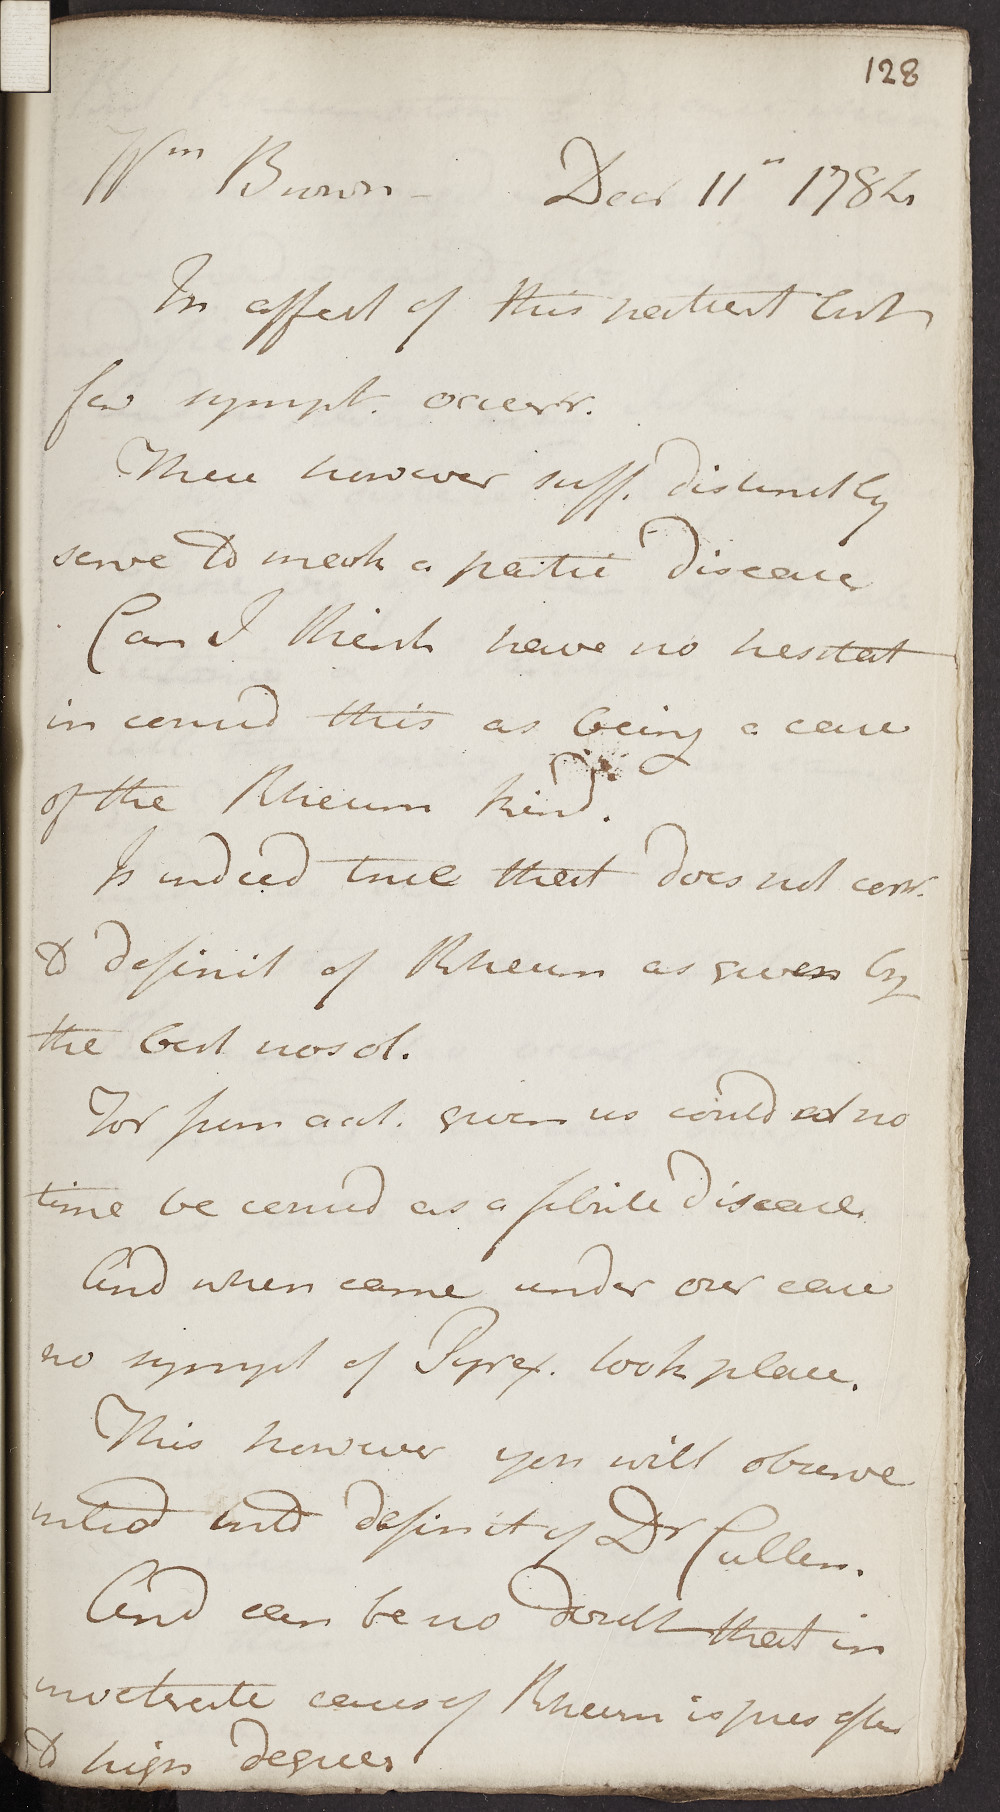 128
Wm Brown - Decr 11th 1784
In affect of this patient but
few sympt. occurr.
These however suff. distinctly
serve to mark a partic disease
Can I think have no hesitat
in consid this as being a case
of the Rheum kind.
Is indeed true that does not corr.
to definit of Rheum as given by
the best nosol.
For from acct. given us could at no
time be consid as a febrile disease
And when came under our care
no sympt of Pyrex. took place.
This however you will observe
introd into definit of Dr Cullen.
And can be no doubt that in
inveterate cases of Rheum is pres often
to high degree